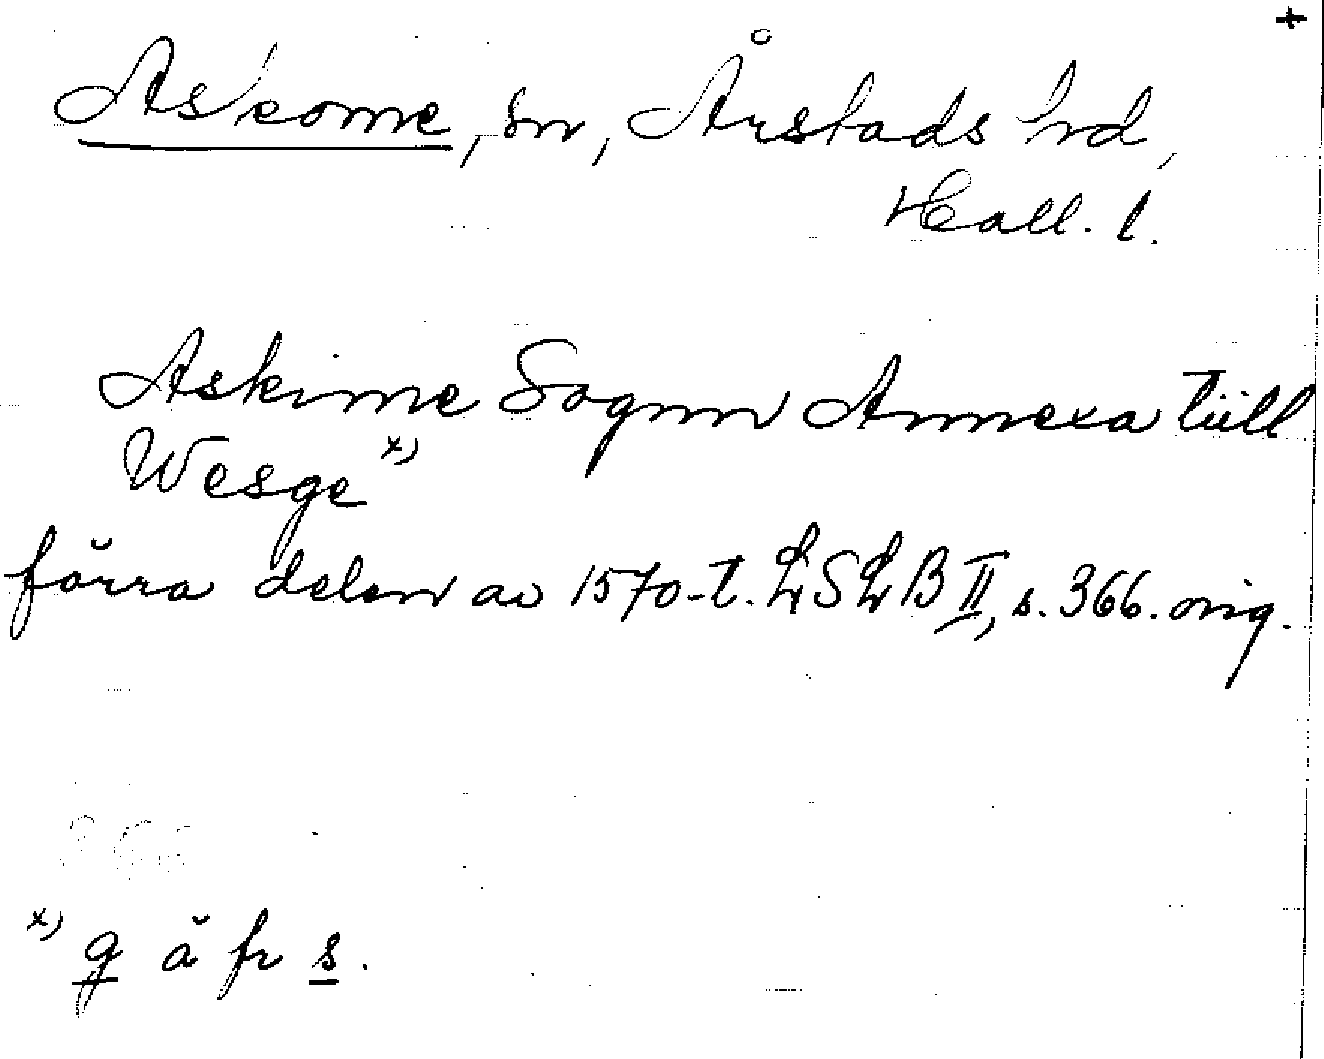 +
Askome, sn, Årstads hd,
Hall. l.
Askime Sognn Annexa tiill
Wesge x)
förra delen av 1570-t. LSLB II, s. 366. orig.
x) g ä fr s.